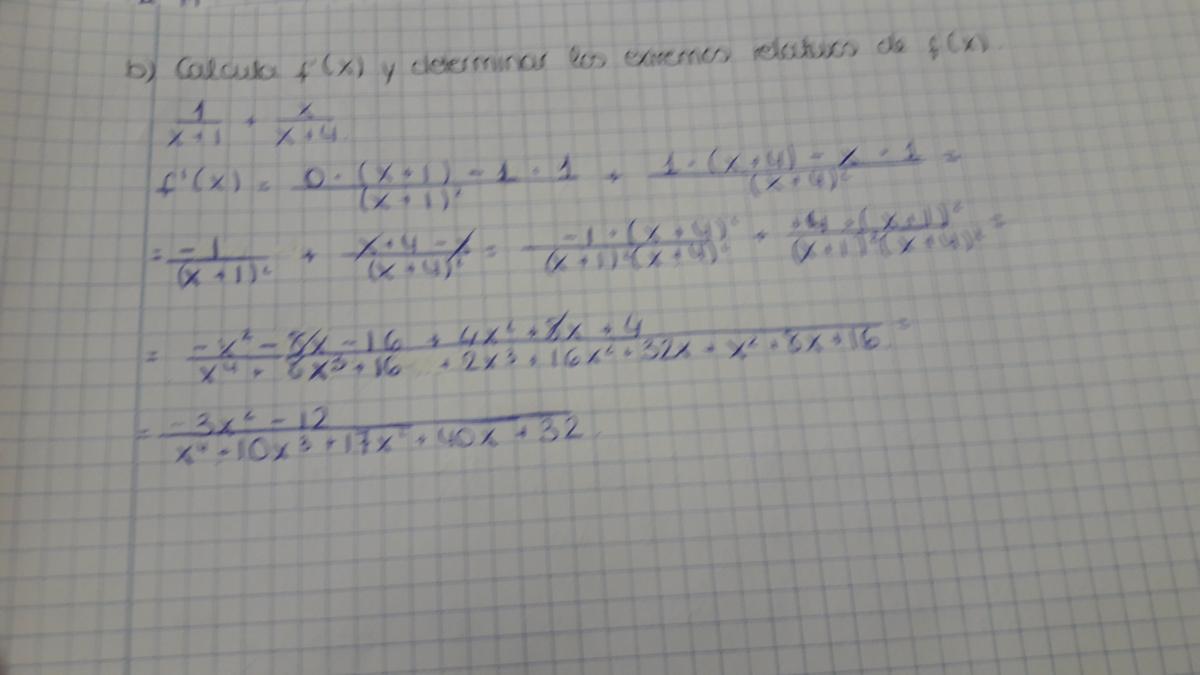 b) Calcula f'(x) y determinar los extremos relativos de f(x).
1/(x+1) + x/(x+4)
f'(x) = (0·(x+1) - 1·1)/(x+1)² + (1·(x+4) - x·1)/(x+4)² =
= -1/(x+1)² + (x+4-x)/(x+4)² = (-1·(x+4)²)/((x+1)²(x+4)²) + (+4·(x+1)²)/((x+1)²(x+4)²) =
= (-x² - 8x - 16 + 4x² + 8x + 4)/(x⁴ + 8x³ + 16 + 2x³ + 16x² + 32x + x² + 8x + 16) =
= (-3x² - 12)/(x⁴ + 10x³ + 17x² + 40x + 32)